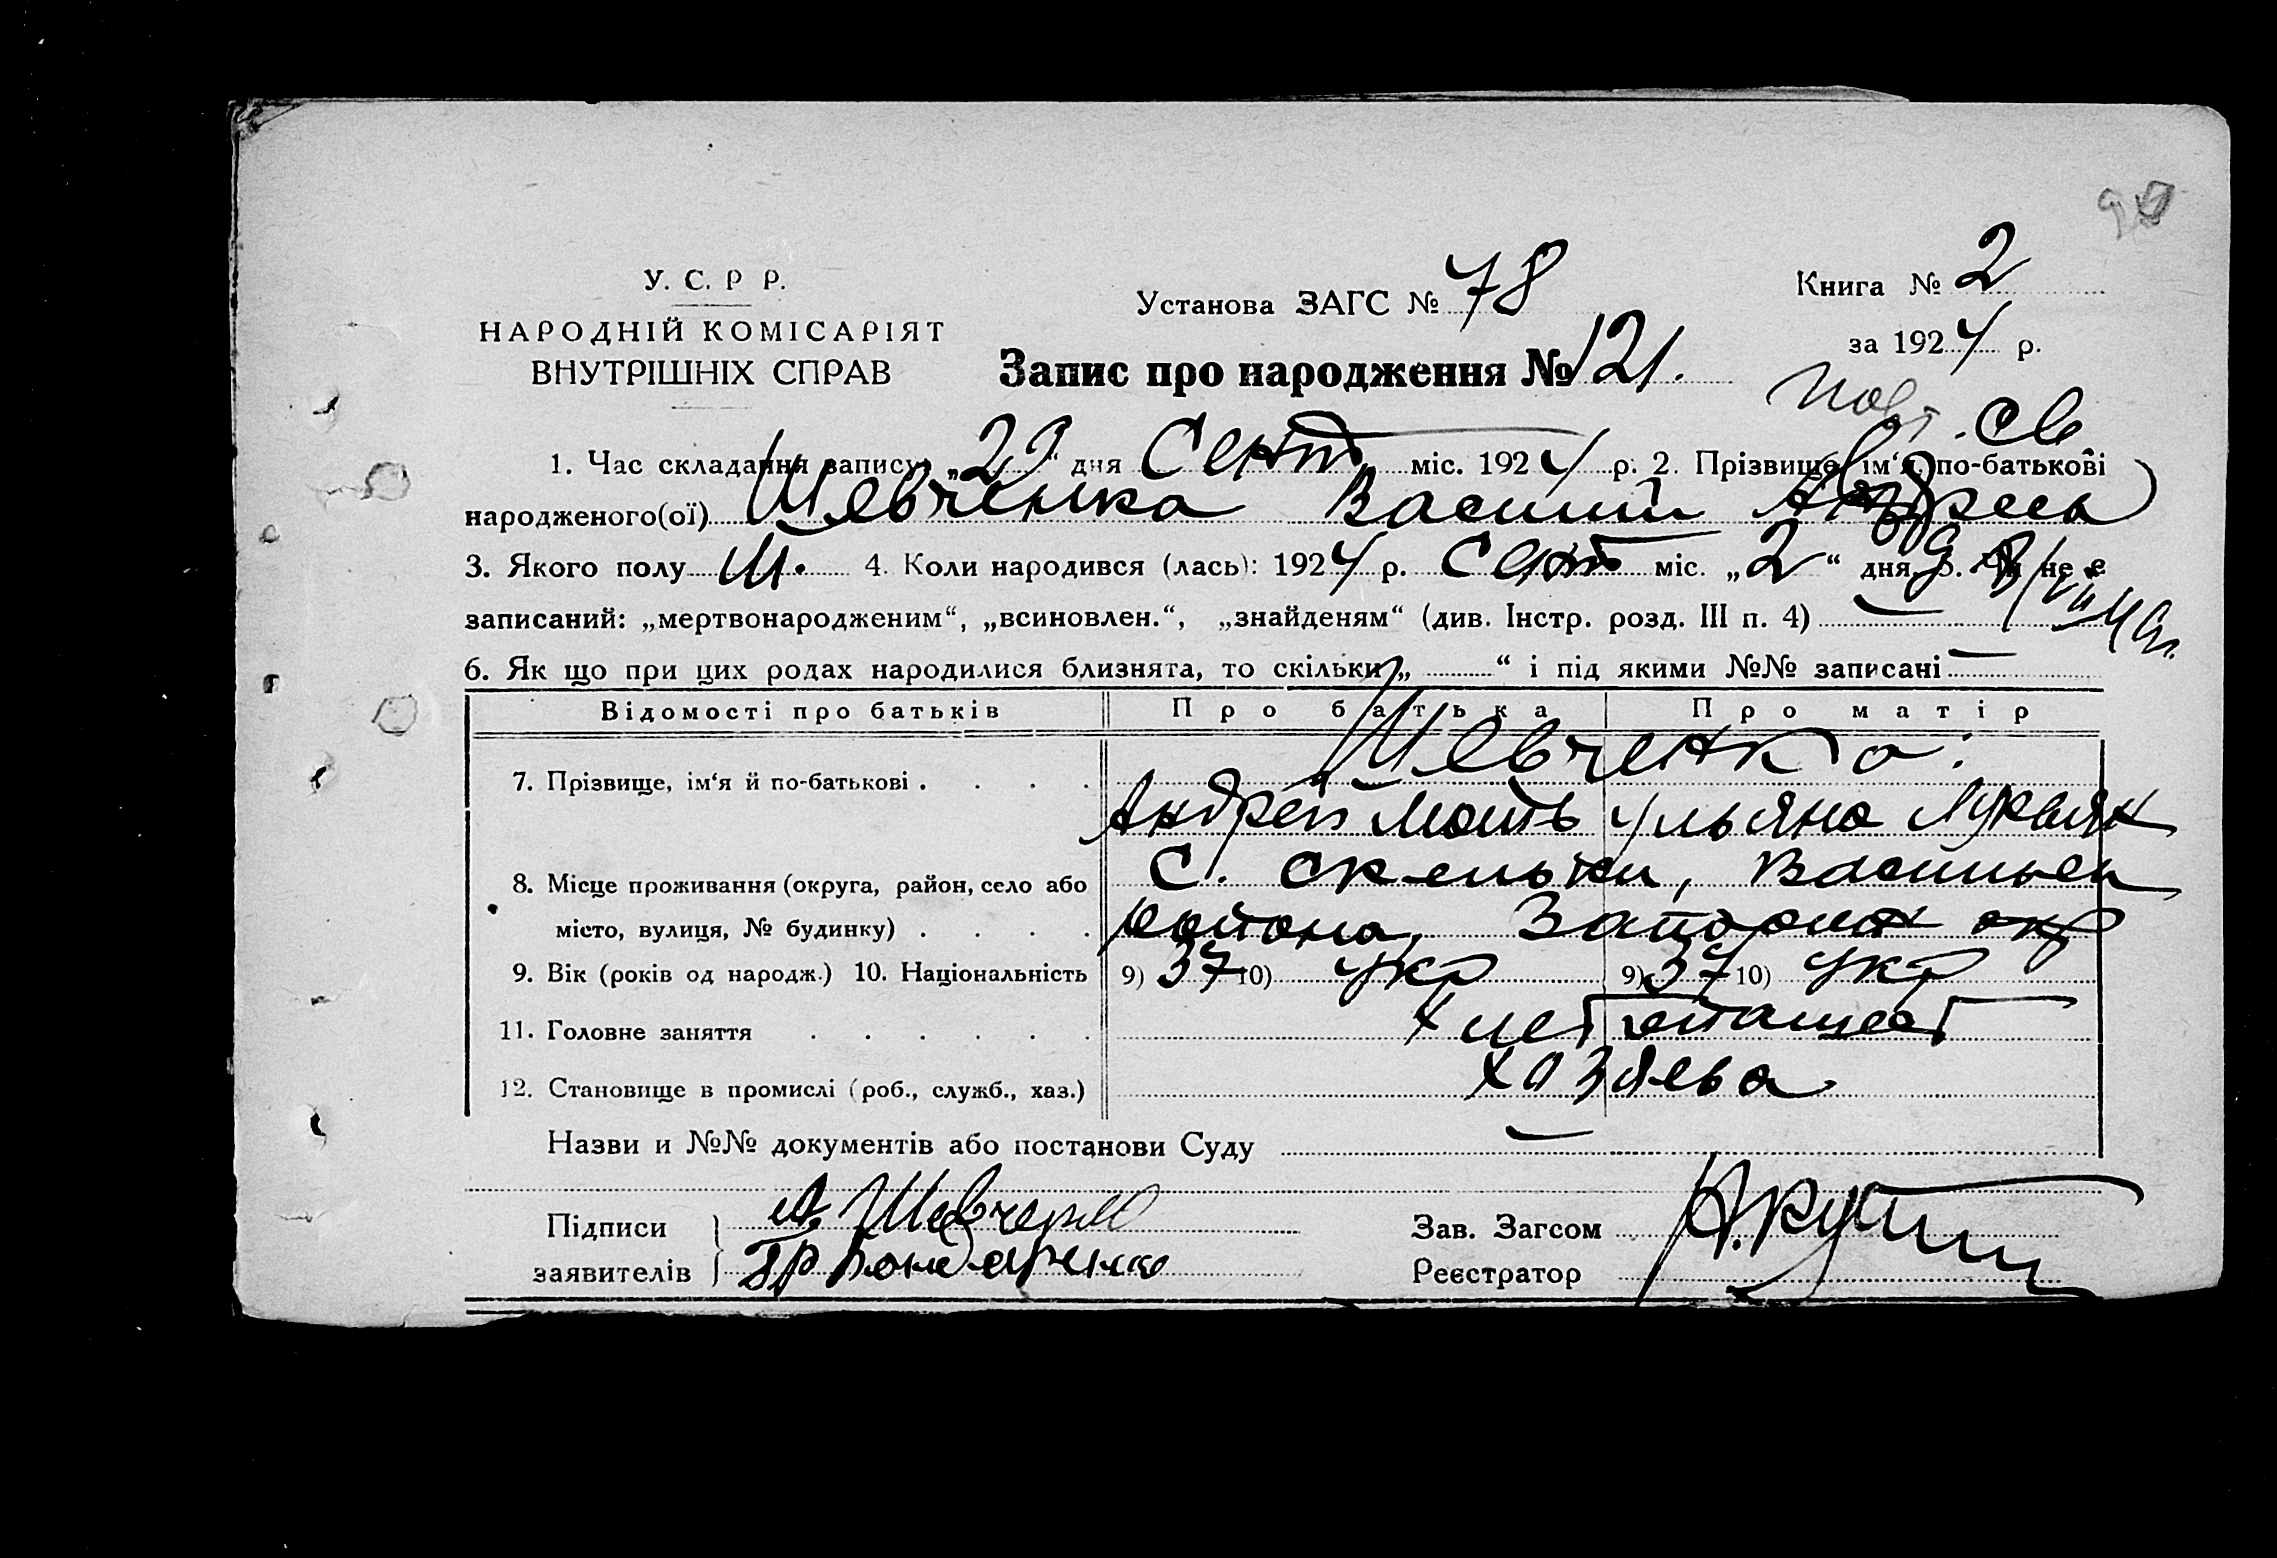 У. С. Р Р.
НАРОДНІЙ КОМІСАРІЯТ
ВНУТРІШНІХ СПРАВ
Установа ЗАГС № 78
Книга № 2
за 1924 р.
Запис про народження № 121.
1. Час складання запису „29“ дня Сент міс. 1924 р. 2. Прізвище, ім‘я, по-батькові
народженого(ої) Шевченка Василий
3. Якого полу М. 4. Коли народився (лась): 1924 р. Сент міс. „2“ дня 5. не є
записаний: „мертвонародженим“, „всиновлен.“, „знайденям“ (див. Інстр. розд. III п. 4) —
6. Як що при цих родах народилися близнята, то скільки „ “ і під якими №№ записані —
Відомості про батьків Про батька Про матір
7. Прізвище, ім‘я й по-батькові . . . . Шевченко:
Андрей Мать Ульяна
8. Місце проживання (округа, район, село або С. Скельки, Васильев
місто, вулиця, № будинку) . . . . района, Запорож окр
9. Вік (років од народж.) 10. Національність 9) 37 10) укр 9) 37 10) укр
11. Головне заняття . . . . . . Хлебопашест
12. Становище в промислі (роб., служб., хаз.) хазяева
Назви и №№ документів або постанови Суду —
Підписи А. Шевченко Зав. Загсом
заявителів Гр Бондаренко Реєстратор